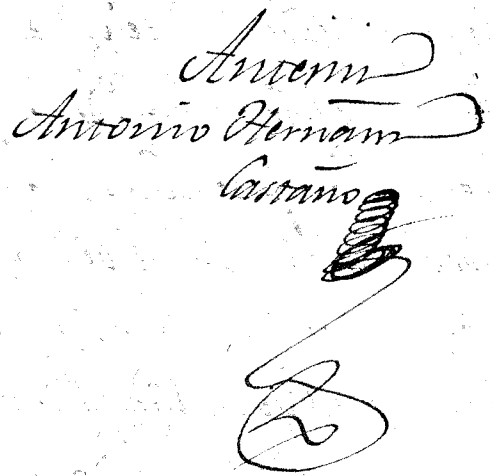 Antemi
Antonio Hernan
Castaño